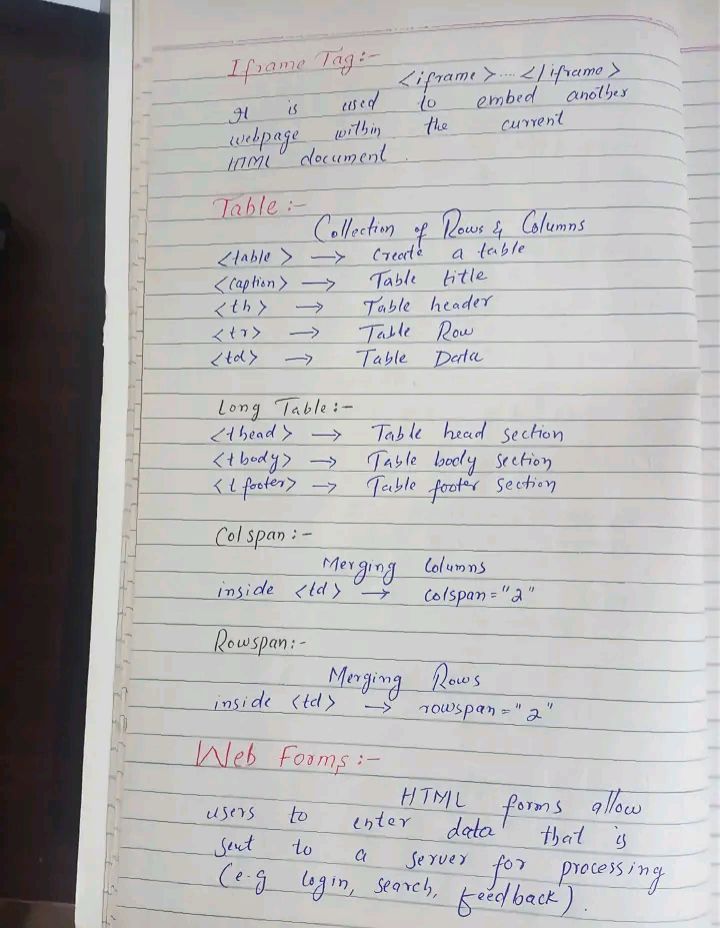 Iframe Tag:-
<iframe>....</iframe>
It is used to embed another
webpage within the current
HTML document.
Table:-
Collection of Rows & Columns
<table> → Create a table
<caption> → Table title
<th> → Table header
<tr> → Table Row
<td> → Table Data
Long Table:-
<thead> → Table head section
<tbody> → Table body section
<tfooter> → Table footer section
Colspan:-
Merging Columns
inside <td> → colspan="2"
Rowspan:-
Merging Rows
inside <td> → rowspan="2"
Web Forms:-
HTML forms allow
users to enter data that is
sent to a server for processing
(e.g login, search, feedback).